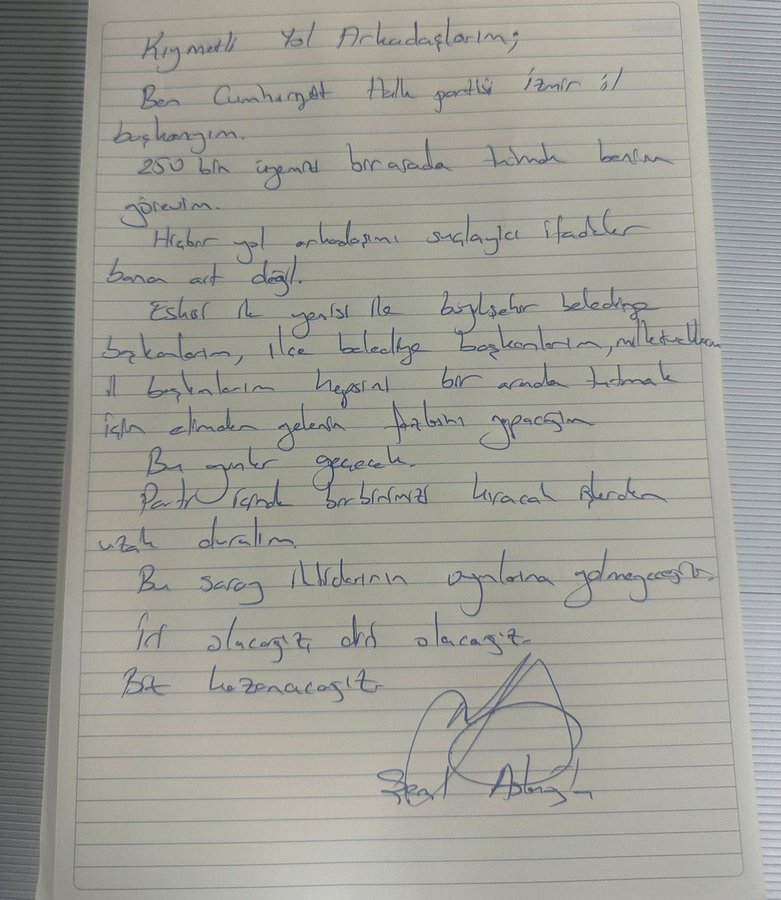 Kıymetli Yol Arkadaşlarım;
Ben Cumhuriyet Halk partisi İzmir il
başkanıyım.
250 bin üyemizi bir arada tutmak benim
görevim.
Hiçbir yol arkadaşımı suçlayıcı ifadeler
bana ait değil.
Eskisi ile yenisi ile büyükşehir belediye
başkanlarım, ilçe belediye başkanlarım, milletvekillerim
il başkanlarım hepsini bir arada tutmak
için elimden gelenin fazlasını yapacağım
Bu günler geçecek.
Parti içinde birbirimizi kıracak işlerden
uzak duralım.
Bu saray iktidarının oyunlarına gelmeyeceğiz.
İri olacağız, diri olacağız.
Biz kazanacağız.
Şenol Aslanoğlu